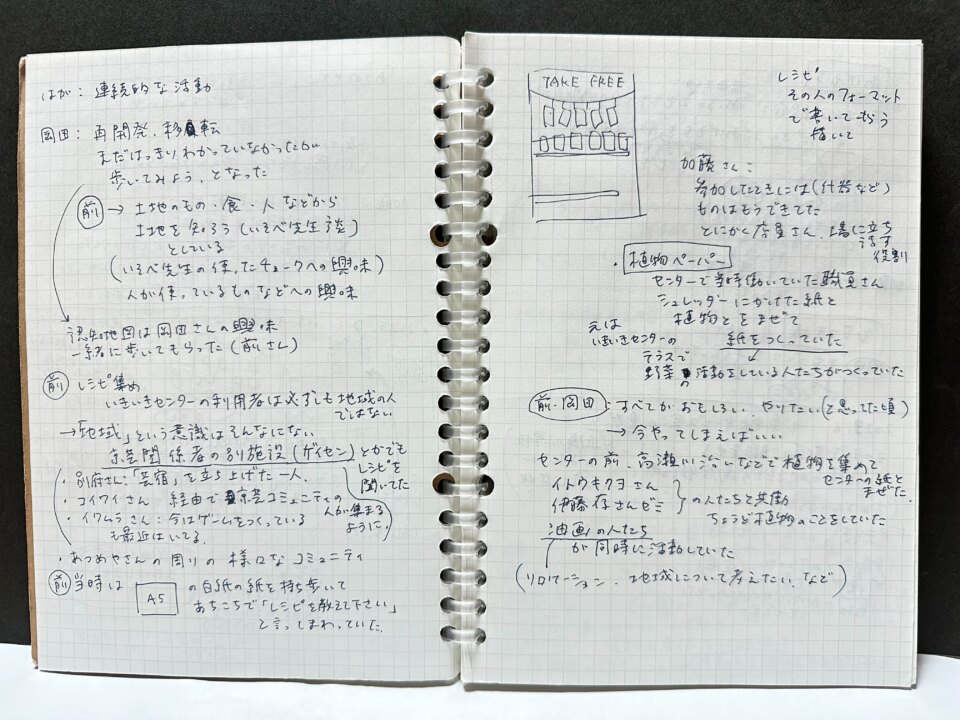 はが: 連続的な活動
岡田: 再開発、移転
まだはっきりわかっていなかったが
歩いてみよう、となった
前 → 土地のもの・食・人 などから
土地を知ろう(いそべ先生談)
としている
(いそべ先生の使ったチョークへの興味)
人が使っているものなどへの興味
認知地図は岡田さんの興味
一緒に歩いてもらった(前さん)
前 レシピ集め
いきいきセンターの利用者は必ずしも地域の人
ではない
→「地域」という意識はそんなにない
京芸関係者の別施設(ゲイセン)とかでも
レシピを
聞いてた
・別府さん:「芸宿」を立ち上げた一人
・コイワイさん 経由で京芸コミュニティの
人が集まる
ように。
・イワムラさん:今はゲームをつくっている
も最近はいてる。
・あつめやさんの周りの 様々なコミュニティ
前 当時は A5 の白紙の紙を持ち歩いて
あちこちで「レシピを教えて下さい」
と言ってまわっていた。
TAKE FREE
レシピ
その人のフォーマット
で書いてもらう
描いて
加藤さん:
参加したときには(什器など)
ものはもうできてた
とにかく店員さん、場に立ち
話す
役割
・植物ペーパー
センターで当時働いていた職員さん
シュレッダーにかけた紙と
植物とをまぜて
紙をつくっていた
元は
いきいきセンターの
テラスで
野菜の活動をしている人たちがつくっていた
前・岡田:すべてがおもしろい、やりたい(と思ってた頃)
→ 今やってしまえばいい
センターの前、高瀬川沿いなどで植物を集めて
センターの紙と
まぜた。
イトウキクヨさん
伊藤存さんゼミ
の人たちと共働
ちょうど植物のことをしていた
油画の人たち
が同時に活動していた
(リロケーション、地域について考えたい、など)